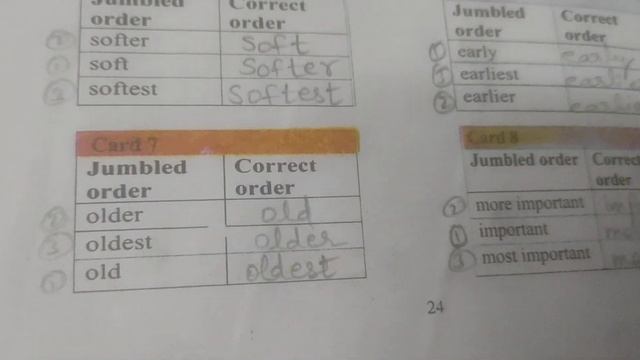 Jumbled order Correct order
② softer Soft
① soft Softer
③ softest Softest
Jumbled order Correct order
① early early
③ earliest
② earlier
Card 7
Jumbled order Correct order
② older old
③ oldest older
① old oldest
Card 8
Jumbled order Correct order
② more important
① important
③ most important
24